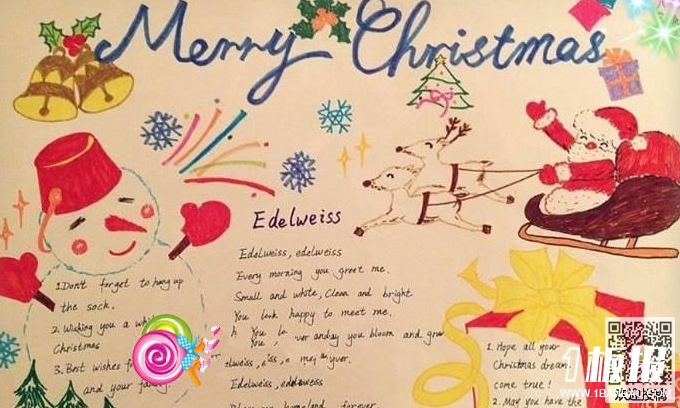 Merry Christmas
Edelweiss
Edelweiss, edelweiss
Every morning you greet me.
Small and white, Clean and bright
You look happy to meet me.
you bloom and grow
Edelweiss, edelweiss
forever
1. Don't forget to hang up
the sock.
2. Wishing you a
Christmas
3. Best wishes
and your
1. Hope all your
Christmas dream
come true!
2. May you have the
1板报
WWW.1BANBAO.COM
欢迎投稿